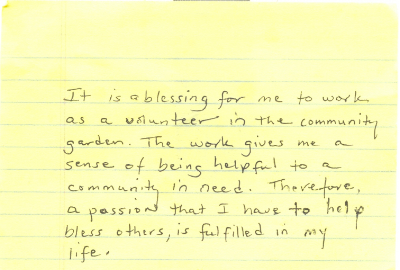 It is a blessing for me to work
as a volunteer in the community
garden. The work gives me a
sense of being helpful to a
community in need. Therefore,
a passion that I have to help
bless others, is fulfilled in my
life.